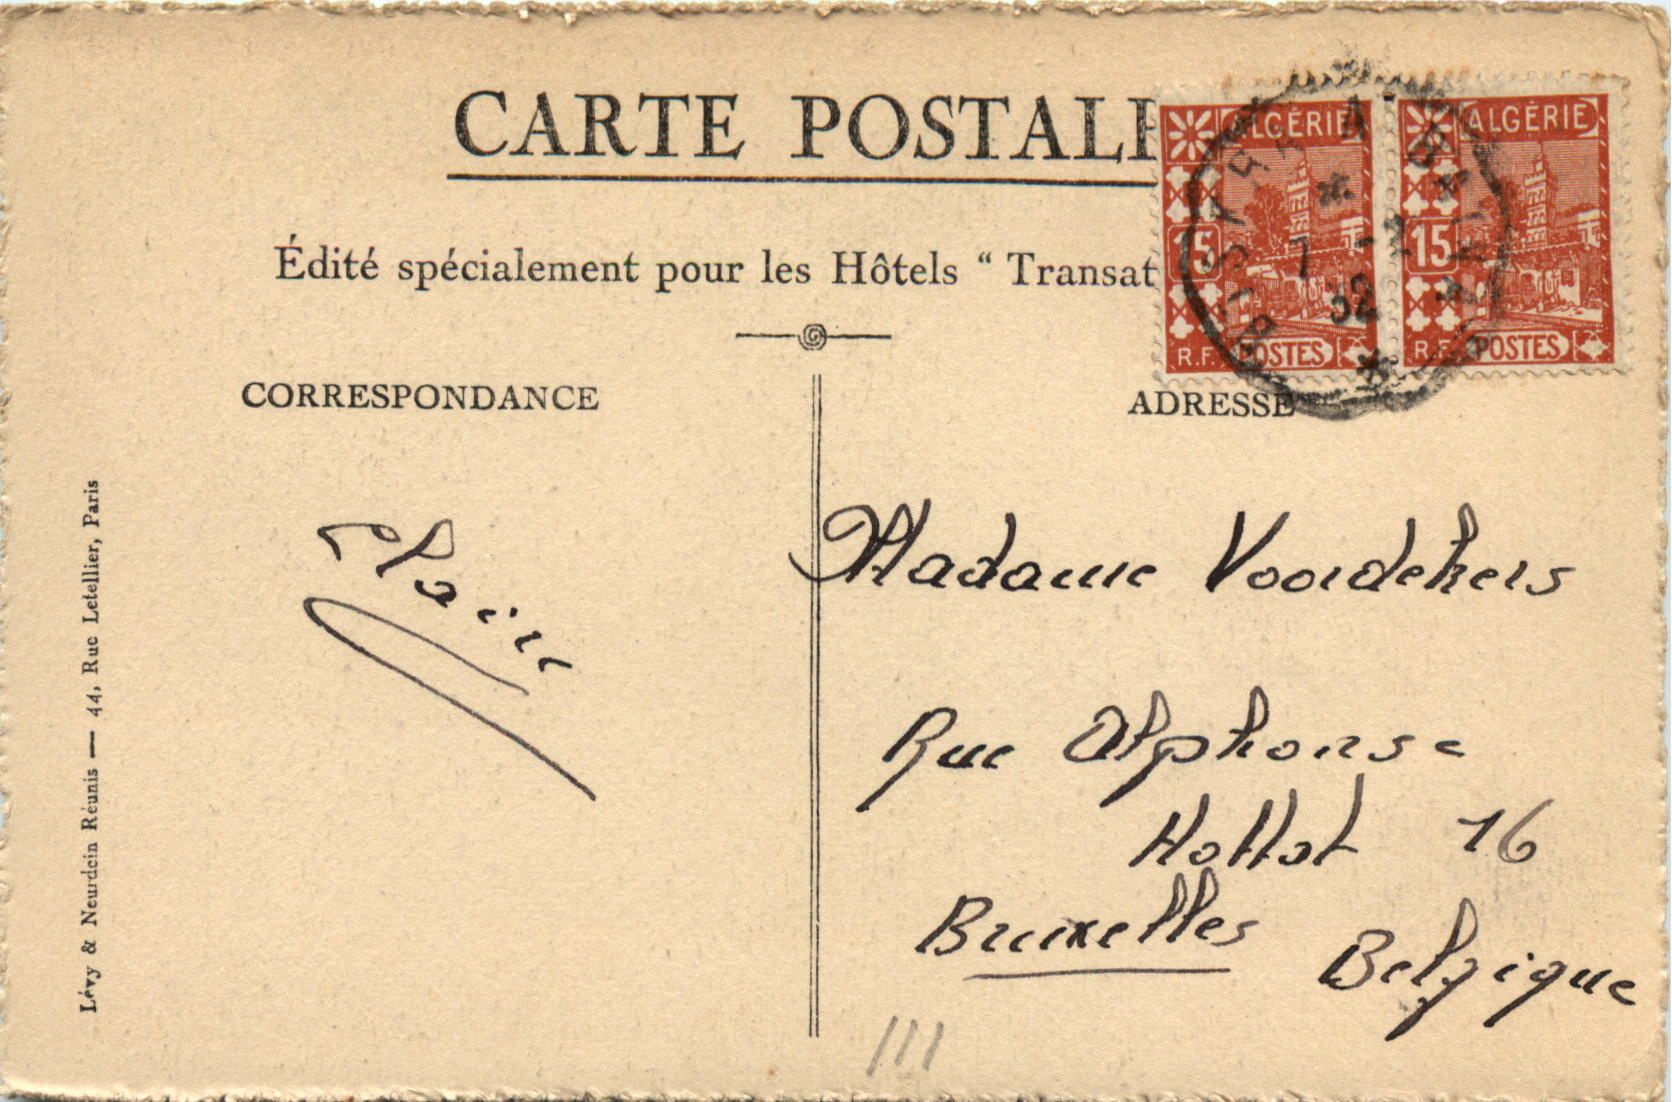 CARTE POSTAL
Édité spécialement pour les Hôtels “ Transat
CORRESPONDANCE
ADRESSE
ALGÉRIE
15
R.F. POSTES
ALGÉRIE
15
R.F. POSTES
7 -2
32
Madame Voordekers
Rue Alphonse
Hottat 16
Bruxelles Belgique
Lévy & Neurdein Réunis — 44, Rue Letellier, Paris